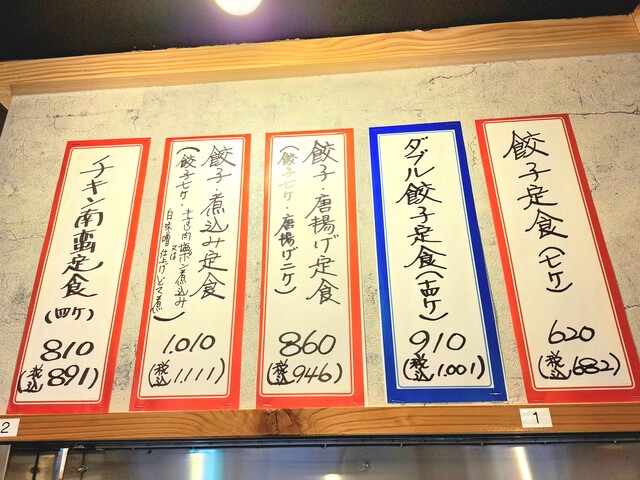 餃子定食(七ケ)
620
(税込682)
ダブル餃子定食(十四ケ)
910
(税込1.001)
餃子・唐揚げ定食
(餃子七ケ・唐揚げ二ケ)
860
(税込946)
餃子・煮込み定食
(餃子七ケ・
又は
白味噌仕上げどて煮)
1.010
(税込1.111)
チキン南蛮定食(四ケ)
810
(税込891)
2
1